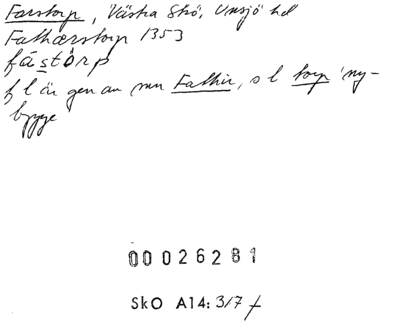 Farstorp, Västra Skö, Unsjö hd
Fathærstorp 1353
fástòrp
f l är gen av mn Fathir, s l torp 'ny-
bygge'
00026281
SkO A14: 3/7